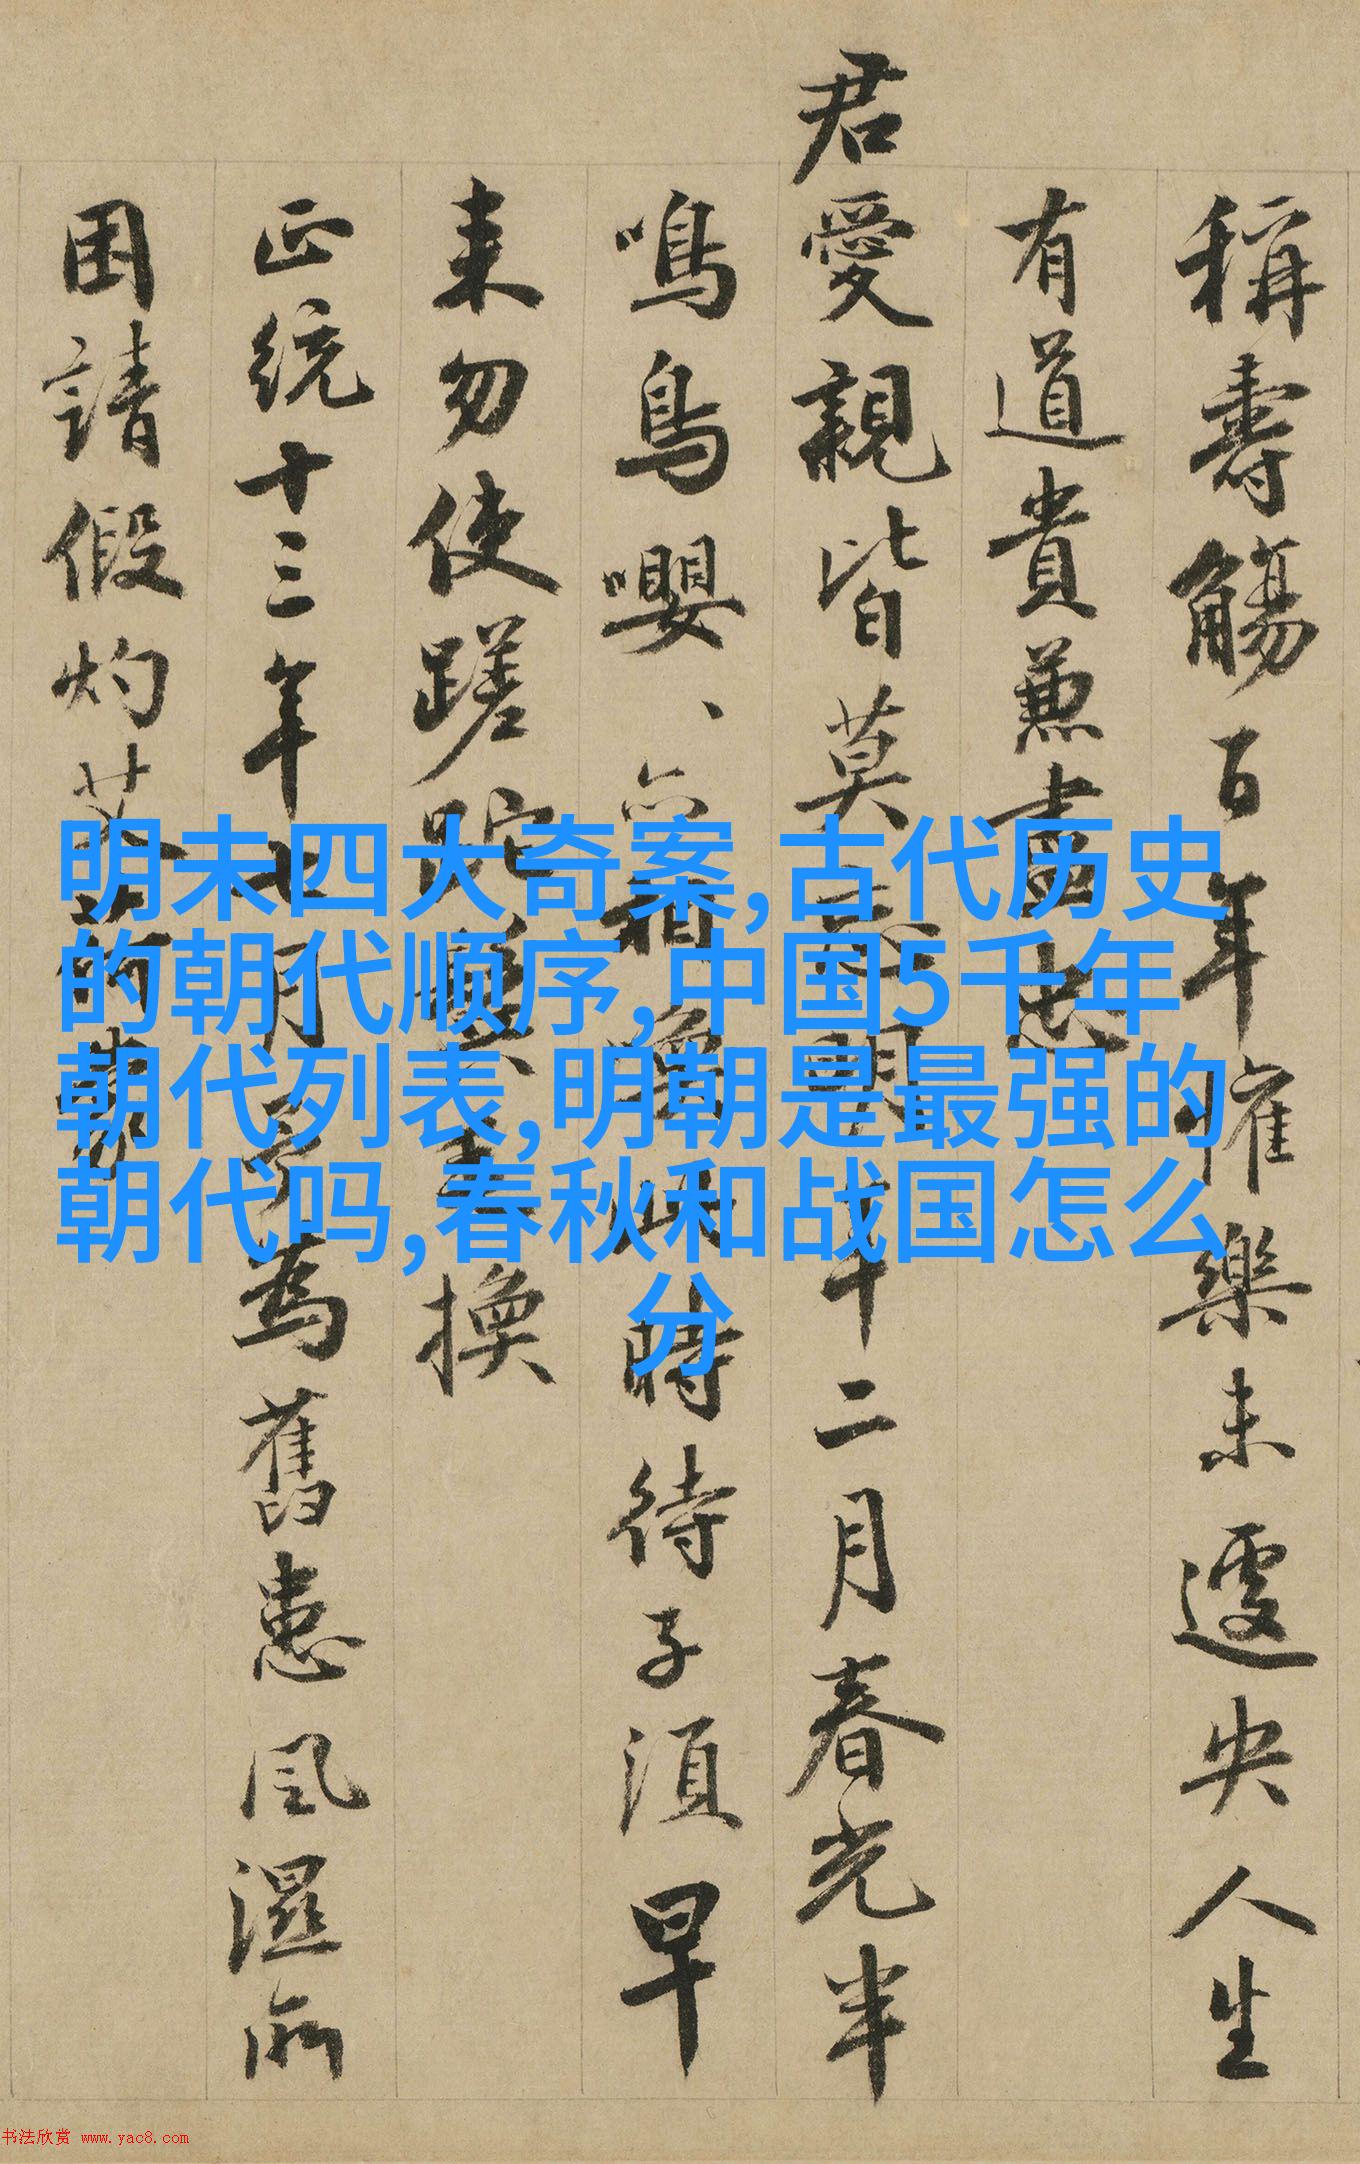 稱壽觴百年懽樂未遽央人生
有道貴兼盡忠
君愛親皆莫年二月春光半
鳴鳥嚶、時待子須早
来勿使蹉跎換
正統十三年七月予為舊患風濕所
困請假灼艾
明末四大奇案,古代历史
的朝代顺序,中国5千年
朝代列表,明朝是最强的
朝代吗,春秋和战国怎么
分
书法欣赏 www.yac8.com